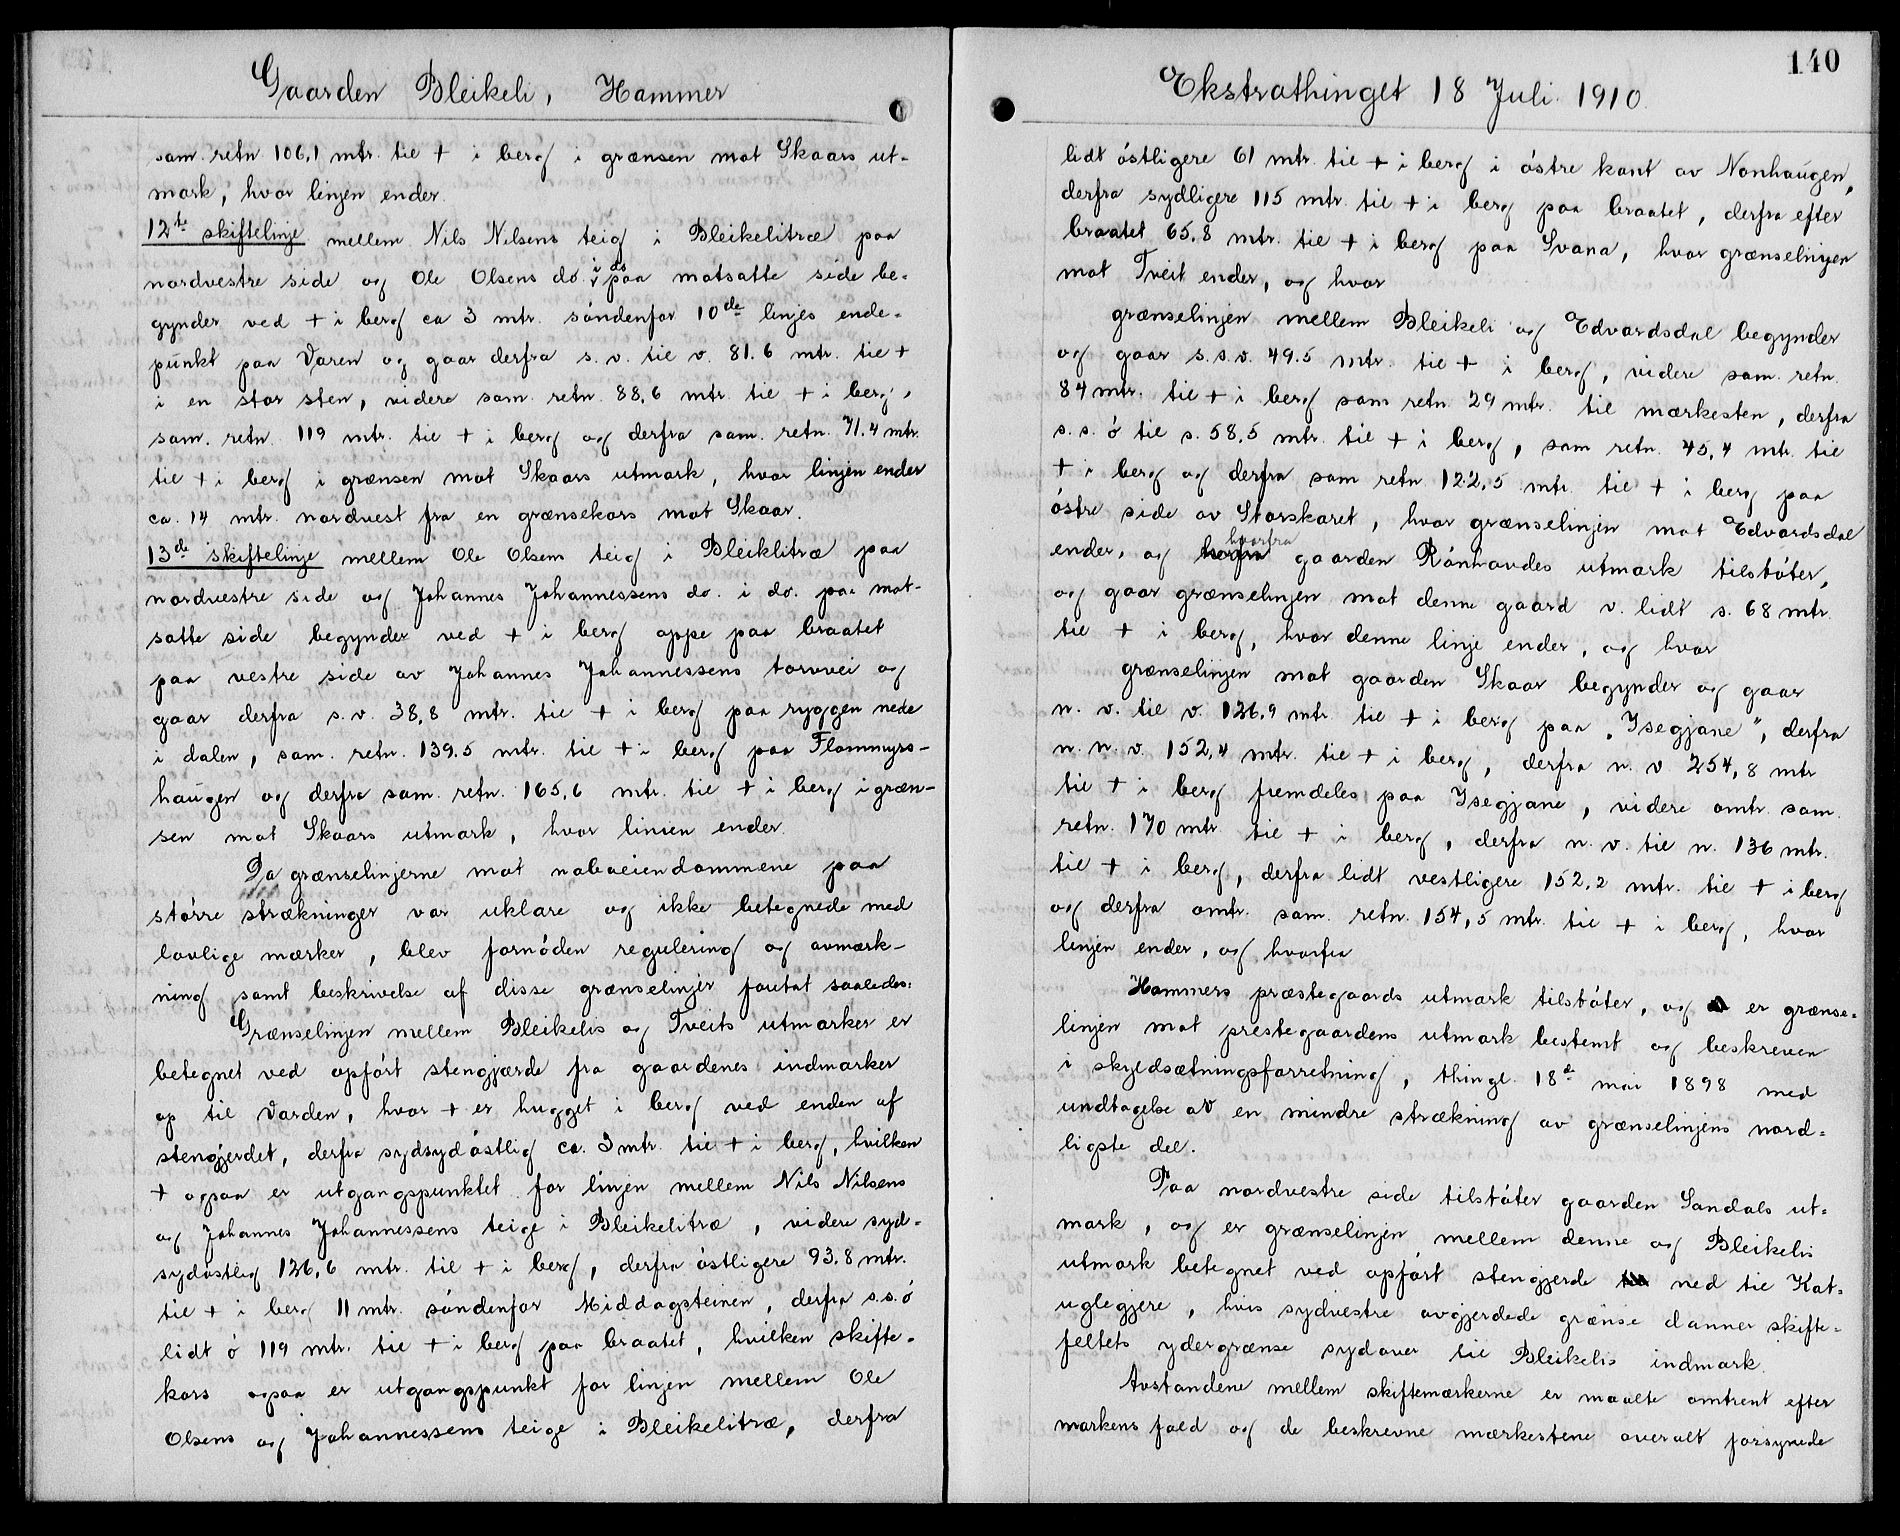 Gaarden Bleikeli, Hammer
sam. retn 106,1 mtr. til + i berg i grænsen mot Skaars ut-
mark, hvor linjen ender.
12te skiftelinje mellem Nils Nilsens teig i Bleikelitræ paa
nordvestre side og Ole Olsens do. i do paa motsatte side be-
gynder ved + i berg ca 3 mtr. söndenfor 10de linjes ende-
punkt paa Varen og gaar derfra s.v. til v. 81.6 mtr. til +
i en stor sten, videre sam. retn. 88,6 mtr. til + i berg,
sam. retn. 119 mtr. til + i berg og derfra sam. retn. 71.4 mtr.
til + i berg i grænsen mot Skaars utmark, hvor linjen ender
ca. 14 mtr. nordvest fra en grænsekors mot Skaar.
13de skiftelinje mellem Ole Olsens teig i Bleiklitræ paa
nordvestre side og Johannes Johannessens do. i do. paa mot-
satte side begynder ved + i berg oppe paa braatet
paa vestre side av Johannes Johannessens torvvei og
gaar derfra s.v. 38,8 mtr. til + i berg paa ryggen nede
i dalen, sam. retn. 139.5 mtr. til + i berg paa Flommyrs-
haugen og derfra sam. retn. 165,6 mtr. til + i berg i græn-
sen mot Skaars utmark, hvor linien ender.
Da grænselinjerne mot naboeiendommene paa
större strækninger var uklare og ikke betegnede med
lovlige mærker, blev fornöden regulering og avmærk-
ning samt beskrivelse af disse grænselinjer foretat saaledes:
Grænselinjen mellem Bleikelis og Tveits utmarker er
betegnet ved opfört stengjærde fra gaardenes indmarker
op til Varden, hvor + er hugget i berg ved enden af
stengjerdet, derfra sydsydöstlig ca. 3 mtr. til + i berg, hvilken
+ ogsaa er utgangspunktet for linjen mellem Nils Nilsens
og Johannes Johannessens teige i Bleikelitræ, videre syd-
sydöstlig 126,6 mtr. til + i berg, derfra östligere 93.8 mtr.
til + i berg 11 mtr. söndenfor Middagsteinen, derfra s.s.ö
lidt ö 119 mtr. til + i berg paa braatet, hvilken skifte-
kors ogsaa er utgangspunkt for linjen mellem Ole
Olsens og Johannessens teige i Bleikelitræ, derfra
140
Ekstrathinget 18 Juli 1910.
lidt östligere 61 mtr. til + i berg i östre kant av Nonhaugen,
derfra sydligere 115 mtr. til + i berg paa braatet, derfra efter
braatet 65,8 mtr. til + i berg paa Svana, hvor grænselinjen
mot Tveit ender, og hvor
grænselinjen mellem Bleikeli og Edvardsdal begynder
og gaar s.s.v. 49.5 mtr. til + i berg, videre sam. retn.
84 mtr. til + i berg sam retn. 29 mtr. til mærkesten, derfra
s.s.ö til s. 58,5 mtr. til + i berg, sam retn. 45,4 mtr. til
+ i berg og derfra sam retn. 122,5 mtr. til + i berg paa
östre side av Storskaret, hvor grænselinjen mot Edvardsdal
ender, og hvorfra gaarden Rönhovdes utmark tilstöter,
og gaar grænselinjen mot denne gaard v. lidt s. 68 mtr.
til + i berg, hvor denne linje ender, og hvor
grænselinjen mot gaarden Skaar begynder og gaar
n. v. til v. 126,9 mtr. til + i berg paa „Isegjane", derfra
n. n. v. 152,4 mtr. til + i berg, derfra n. v. 254,8 mtr
til + i berg fremdeles paa Isegjane, videre omtr. sam.
retn. 170 mtr. til + i berg, derfra n. v. til n. 136 mtr.
til + i berg, derfra lidt vestligere 152,2 mtr. til + i berg
og derfra omtr. sam. retn. 154,5 mtr. til + i berg, hvor
linjen ender, og hvorfra
Hammers præstegaards utmark tilstöter, og er grænse-
linjen mot prestegaardens utmark bestemt og beskreven
i skyldsætningsforretning, thingl. 18de mai 1898 med
undtagelse av en mindre strækning av grænselinjens nord-
ligste del.
Paa nordvestre side tilstöter gaarden Sandals ut-
mark, og er grænselinjen mellem denne og Bleikelis
utmark betegnet ved opfört stengjerde ned til Kat-
uglegjere, hvis sydvestre avgjerdede grænse danner skifte-
feltets ydergrænse sydover til Bleikelis indmark.
Avstandene mellem skiftemærkerne er maalte omtrent efter
markens fald og de beskrevne mærkestene overalt forsynede